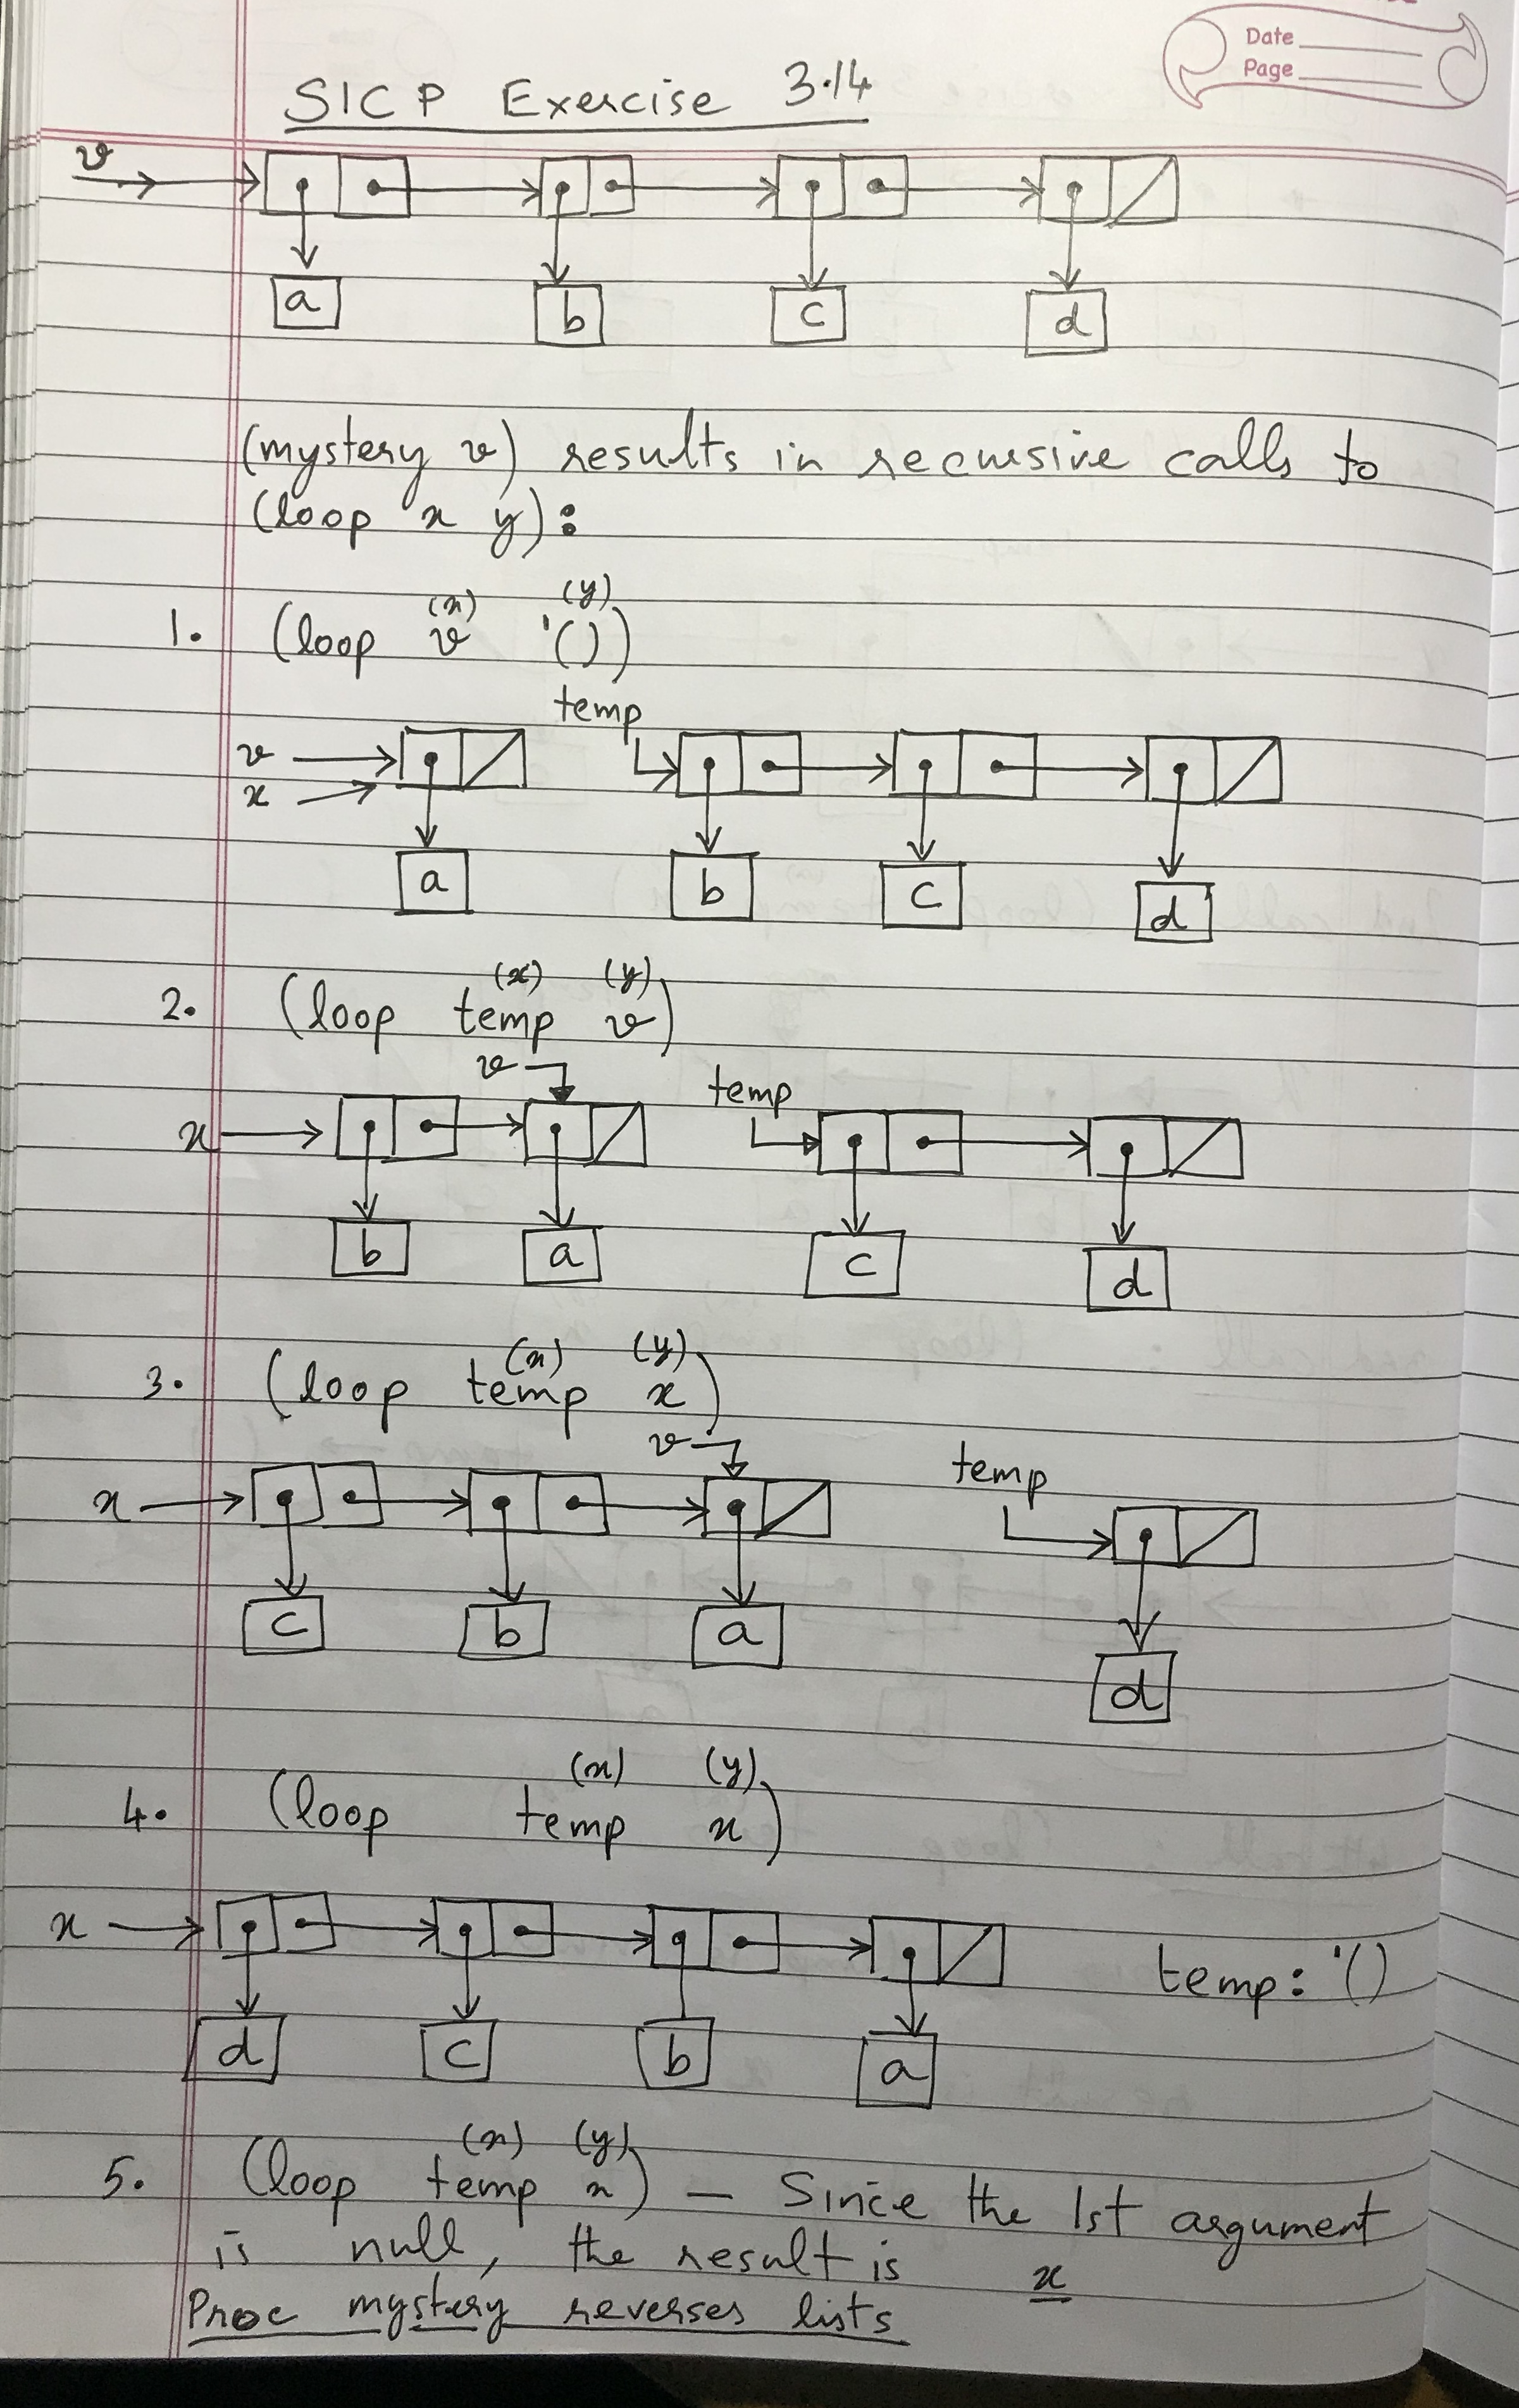 Date
Page
SICP Exercise 3.14
v
a b c d
(mystery v) results in recursive calls to
(loop x y):
(x) (y)
1. (loop v '())
temp
v
x
a b c d
(x) (y)
2. (loop temp v)
v temp
x
b a c d
(x) (y)
3. (loop temp x)
v temp
x
c b a d
(x) (y)
4. (loop temp x)
x temp: '()
d c b a
(x) (y)
5. (loop temp x) — Since the 1st argument
is null, the result is x
Proc mystery reverses lists